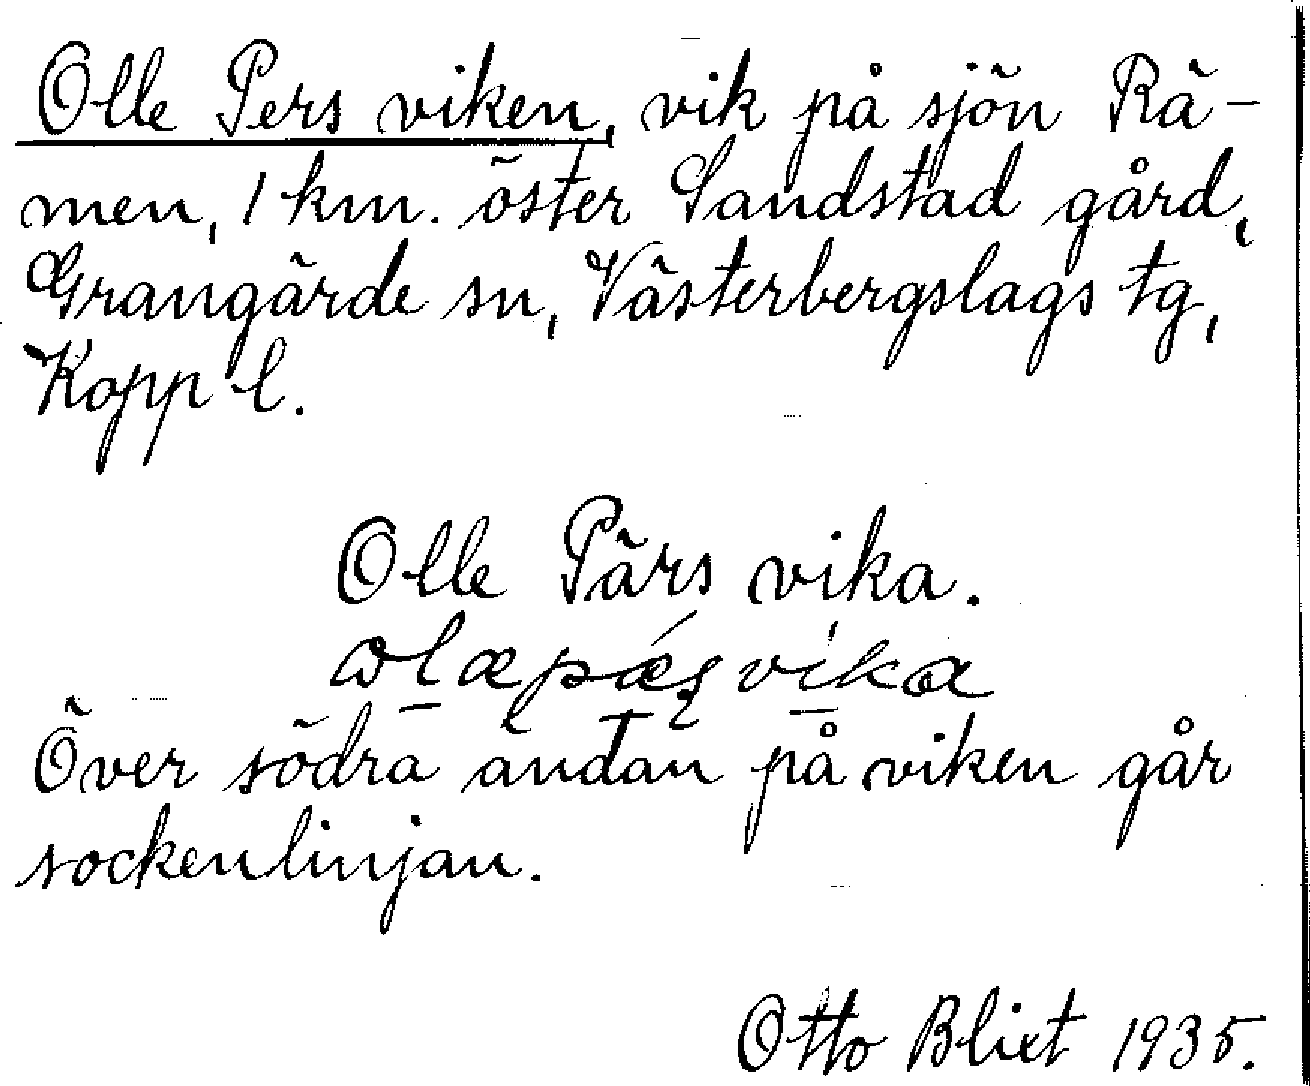 Olle Pers viken, vik på sjön Rä-
men, 1 km. öster Sandstad gård,
Grangärde sn, Västerbergslags tg,
Kopp l.
Olle Pärs vika.
Över södra ändan på viken går
sockenlinjan.
Otto Blixt 1935.